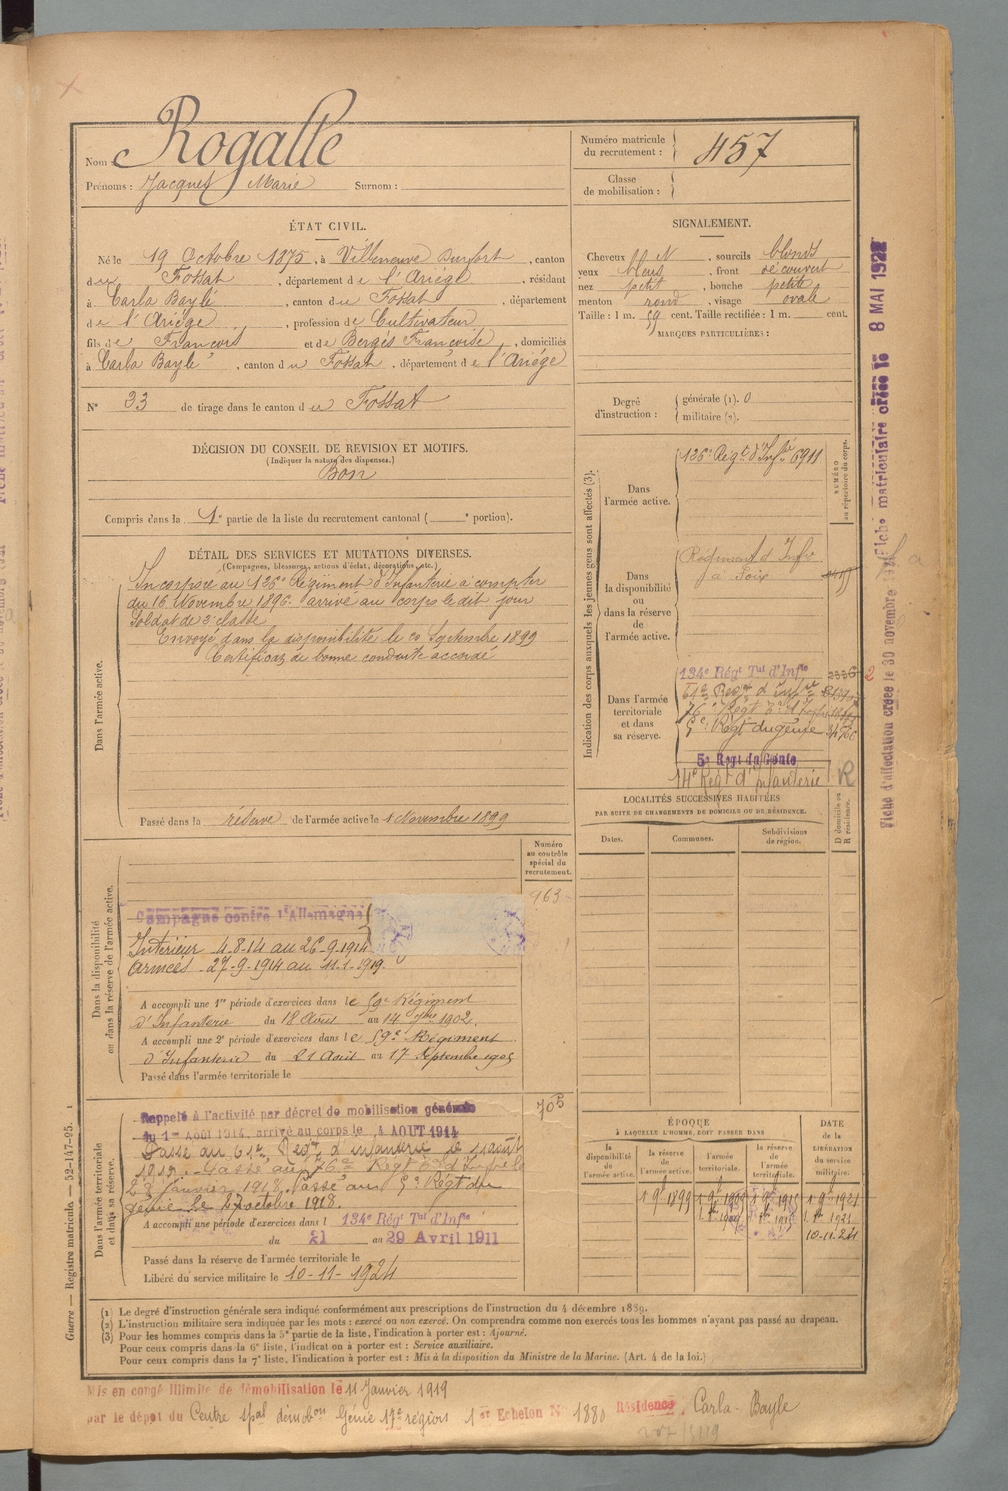 Nom : Rogalle
Prénoms : Jacques Marie Surnom :
Numéro matricule du recrutement : 457
Classe de mobilisation :
ÉTAT CIVIL.
Né le 19 Octobre 1875, à Villeneuve Durfort, canton
du Fossat, département de l'Ariége, résidant
à Carla Baylé, canton du Fossat, département
de l'Ariége, profession de Cultivateur
fils de François et de Bergès Françoise, domiciliés
à Carla Bayle, canton du Fossat, département de l'Ariége
N° 33 de tirage dans le canton du Fossat
SIGNALEMENT.
Cheveux bl N, sourcils blonds
yeux bleus, front découvert
nez petit, bouche petite
menton rond, visage ovale
Taille : 1 m. 59 cent. Taille rectifiée : 1 m. cent.
MARQUES PARTICULIÈRES :
Degré d'instruction : générale (1). 0
militaire (2).
DÉCISION DU CONSEIL DE REVISION ET MOTIFS.
(Indiquer la nature des dispenses.)
Bon
Compris dans la 1e partie de la liste du recrutement cantonal ( e portion).
DÉTAIL DES SERVICES ET MUTATIONS DIVERSES.
(Campagnes, blessures, actions d'éclat, décorations, etc.)
Dans l'armée active.
Incorporé au 126e Régiment d'Infanterie à compter
du 16 Novembre 1896. arrivé au corps le dit jour
Soldat de 2e classe
Envoyé dans la disponibilité le 20 Septembre 1899
Certificat de bonne conduite accordé
Passé dans la réserve de l'armée active le 1 Novembre 1899
Indication des corps auxquels les jeunes gens sont affectés (3).
NUMÉRO au répertoire du corps.
Dans l'armée active.
126e Régt d'Infie 6911
Dans la disponibilité ou dans la réserve de l'armée active.
Régiment d'Infie
à Foix
Dans l'armée territoriale et dans sa réserve.
134e Régt Tal d'Infie
61e Régt d'Infie
76e Régt
5e Régt du génie
5e Regt du Génie
14e Régt d'infanterie R
LOCALITÉS SUCCESSIVES HABITÉES
PAR SUITE DE CHANGEMENTS DE DOMICILE OU DE RÉSIDENCE.
Dates. Communes. Subdivisions de région. D domicile ou R résidence.
Numéro au contrôle spécial du recrutement.
963
Dans la disponibilité ou dans la réserve de l'armée active.
Campagne contre l'Allemagne
Intérieur 4-8-14 au 26-9-1914
Armées 27-9-1914 au 11-1-1919.
A accompli une 1re période d'exercices dans le 59e Régiment
d'Infanterie du 18 Août au 14 7bre 1902.
A accompli une 2e période d'exercices dans le 59e Régiment
d'Infanterie du 21 Août au 17 Septembre 1905
Passé dans l'armée territoriale le
705
Dans l'armée territoriale et dans sa réserve.
Rappelé à l'activité par décret de mobilisation générale
du 1er Août 1914, arrivé au corps le 4 AOUT 1914
Passé au 61e Régt d'infanterie le
Passé au 76e Régt le
23 janvier 1918. Passé au 5e Régt du
génie le 27 octobre 1918.
A accompli une période d'exercices dans l 134e Régt Tal d'Infie
du 21 au 29 Avril 1911
Passé dans la réserve de l'armée territoriale le
Libéré du service militaire le 10-11-1924
ÉPOQUE
À LAQUELLE L'HOMME DOIT PASSER DANS
la disponibilité de l'armée active. la réserve de l'armée active. l'armée territoriale. la réserve de l'armée territoriale.
DATE de la LIBÉRATION du service militaire.
1 9bre 1899 1 9bre 1921
1921
10-11-24
(1) Le degré d'instruction générale sera indiqué conformément aux prescriptions de l'instruction du 4 décembre 1889.
(2) L'instruction militaire sera indiquée par les mots : exercé ou non exercé. On comprendra comme non exercés tous les hommes n'ayant pas passé au drapeau.
(3) Pour les hommes compris dans la 5e partie de la liste, l'indication à porter est : Ajourné.
Pour ceux compris dans la 6e liste, l'indication à porter est : Service auxiliaire.
Pour ceux compris dans la 7e liste, l'indication à porter est : Mis à la disposition du Ministre de la Marine. (Art. 4 de la loi.)
Mis en congé illimité de démobilisation le 11 Janvier 1919
par le dépot du Centre spal démobon Génie 17e région 1er Echelon N° 1880 Résidence Carla-Bayle
Guerre — Registre matricule — 52-147-95.
Fiche matriculaire créée le 8 MAI 1922
Fiche d'affectation créée le 30 novembre